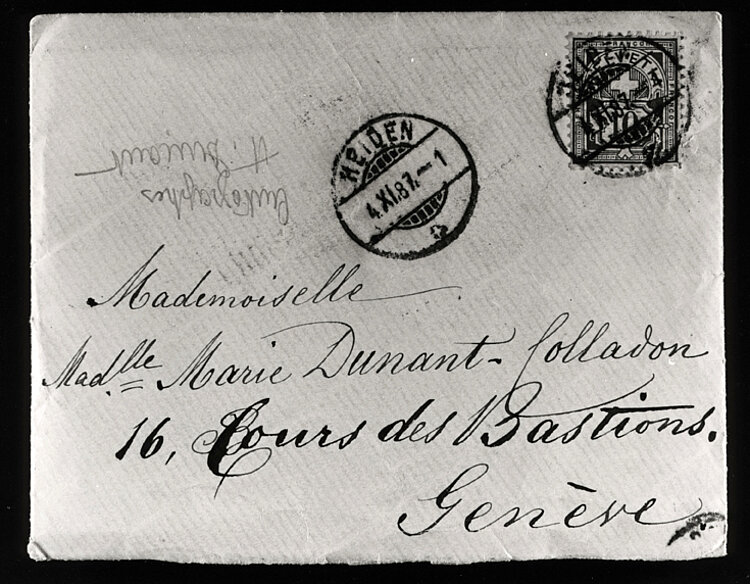 FRANCO
HELVETIA
10
HEIDEN
4.XI.87.—1
Autographes
H. Dunant
Mademoiselle
Mad.lle Marie Dunant-Colladon
16, Cours des Bastions.
Genève